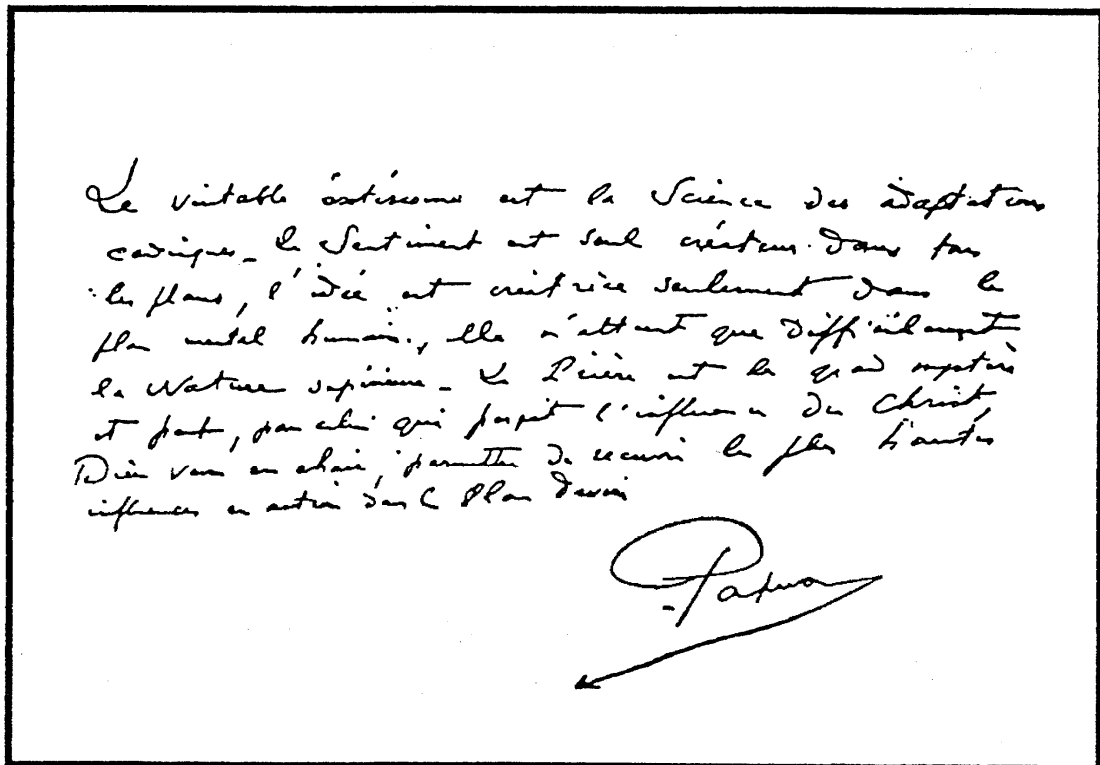 Le véritable ésotérisme est la Science des adaptations
cardiaques - Le Sentiment est seul créateur dans tous
les plans, l'idée est créatrice seulement dans le
plan mental humain, elle n'atteint que difficilement
la Nature supérieure - La Prière est le grand mystère
et peut, pour celui qui perçoit l'influence du Christ,
Dieu venu en chair, permettre de recevoir les plus hautes
influences en action dans le Plan divin
Papus